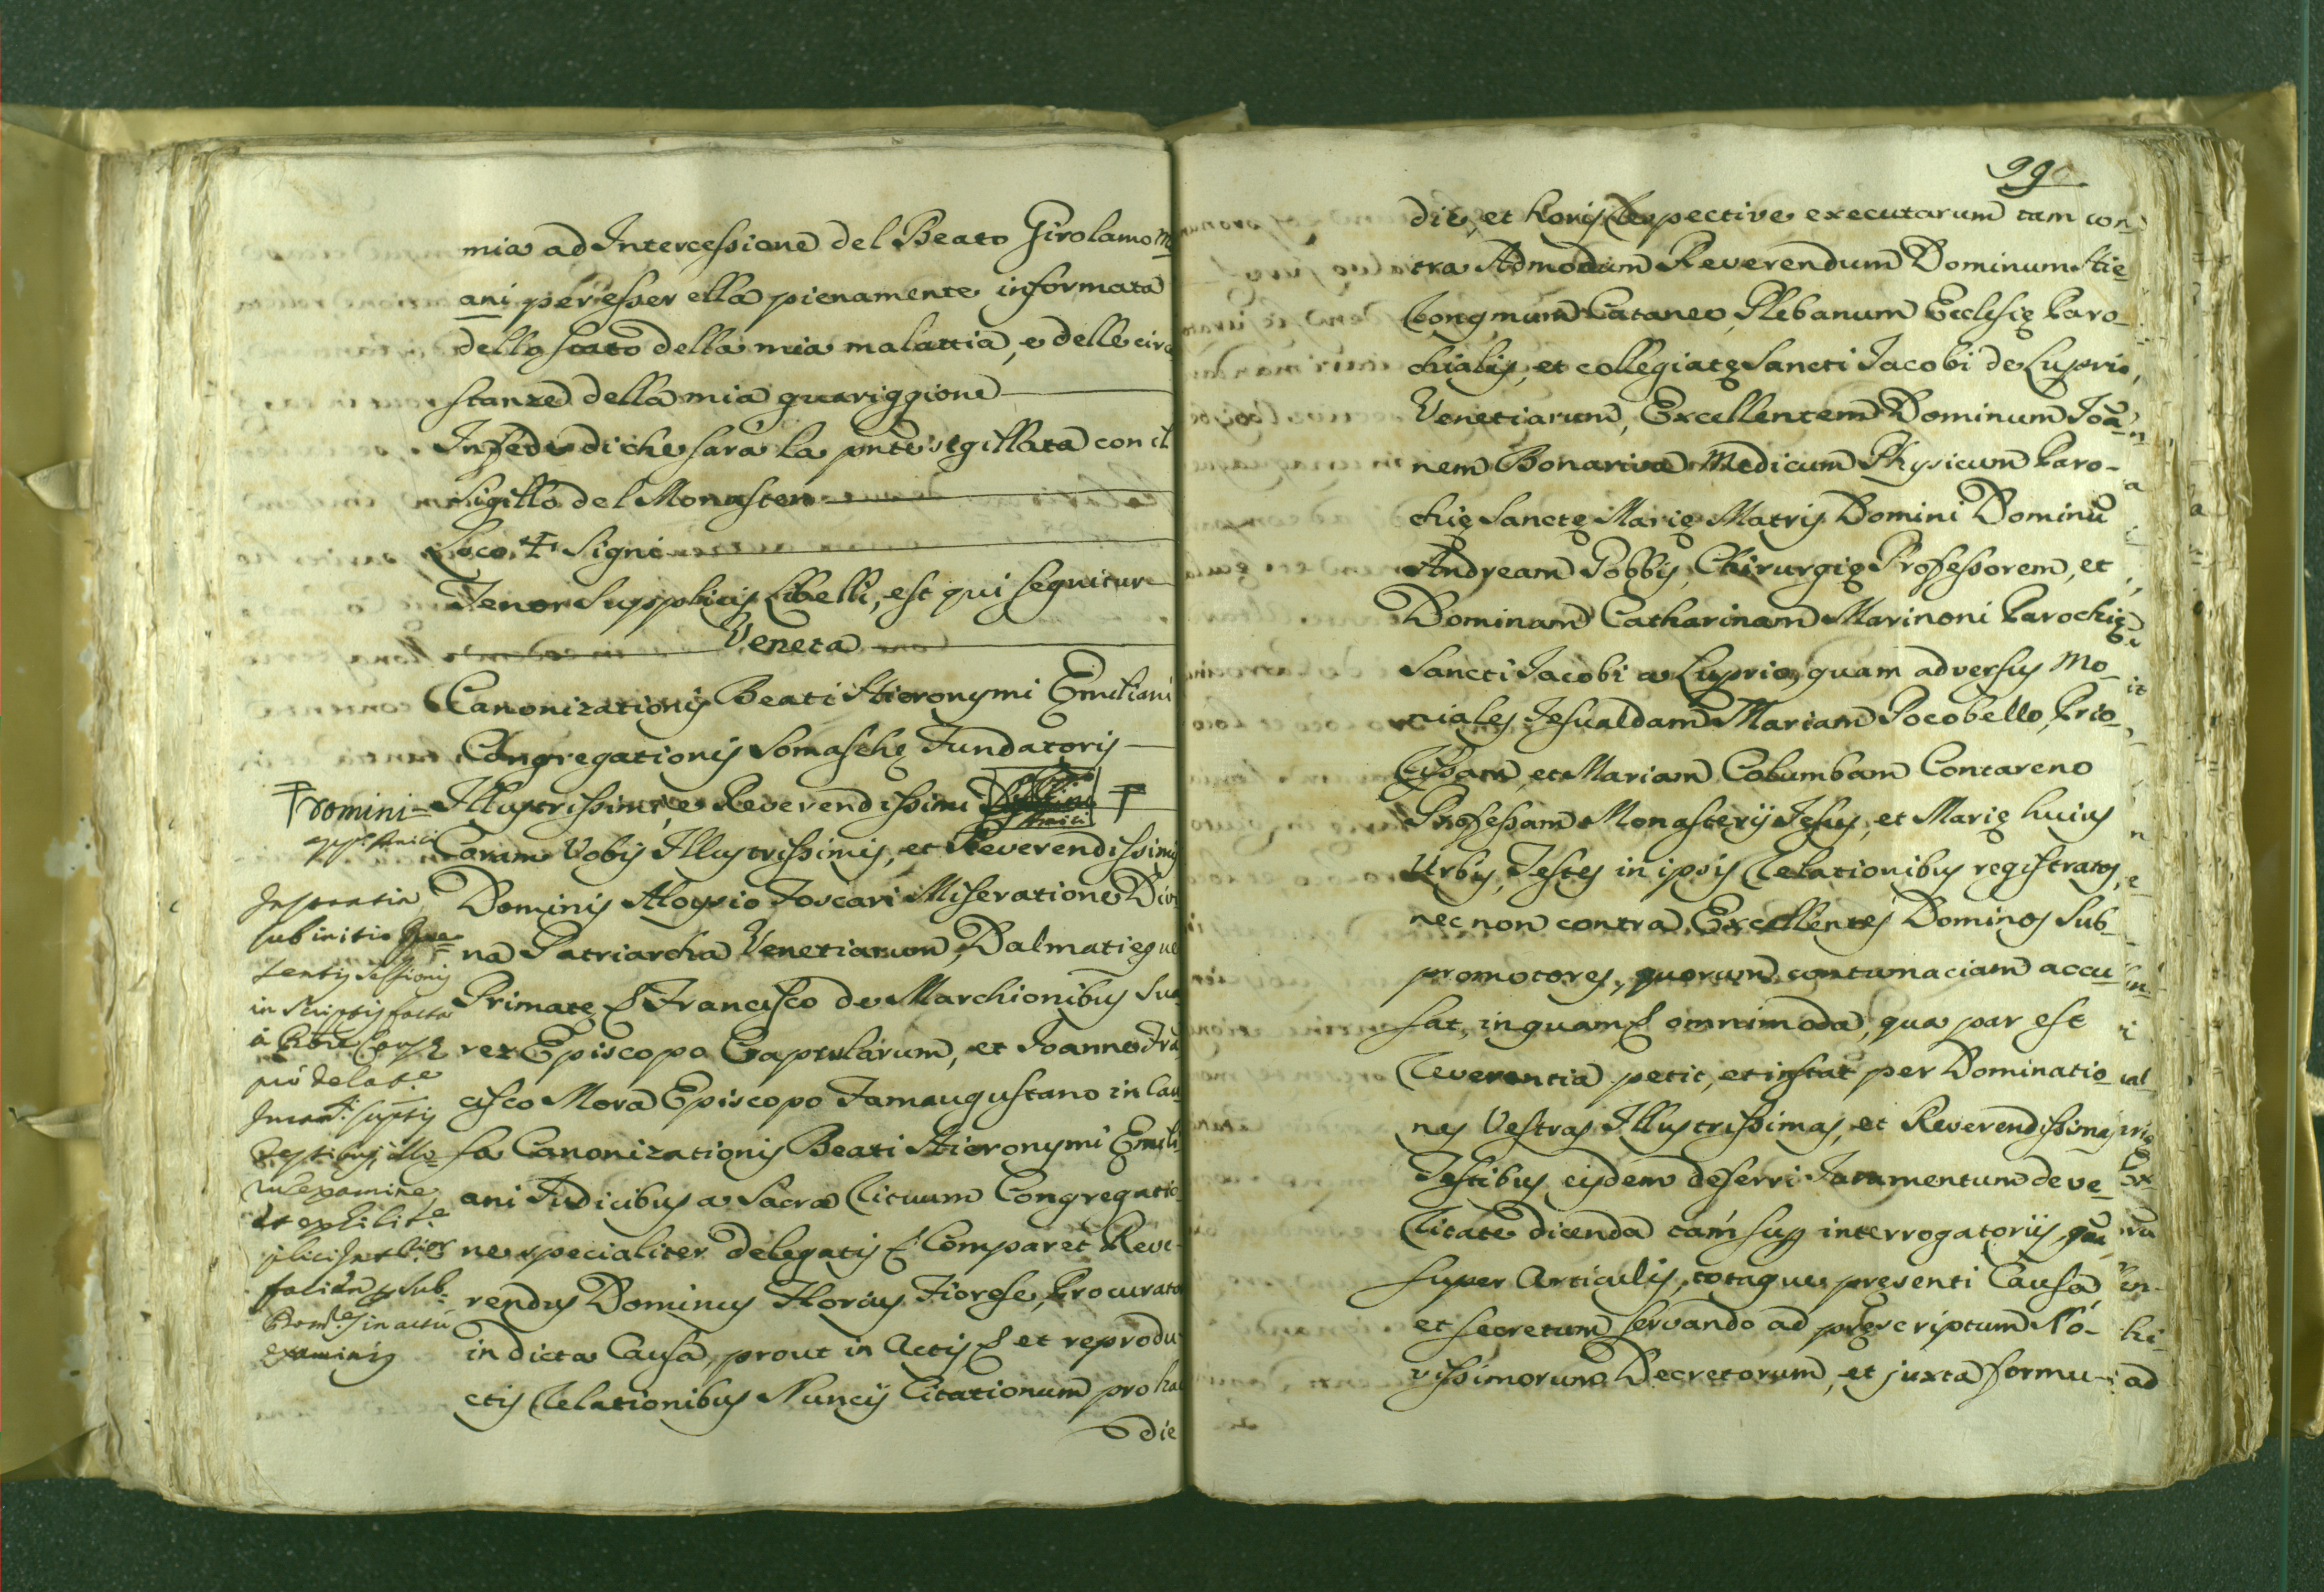 mia ad Intercessione del Beato Girolamo Mi
ani per esser ella pienamente informata
dello stato della mia malattia, e delle circo
stanze della mia guariggione
In fede di che sarà la pnte sigillata con il
Sigillo del Monastero
Loco ✝ Signi
Tenor Supplicis Libelli, est qui sequitur
Veneta
Canonizationis Beati Hieronymi Emiliani
Congregationis Somaschę Fundatoris
Illustrissimi, e Reverendissimi
Coram Vobis Illustrissimis, et Reverendissimis
Dominis Aloysio Foscari Miseratione Divi
na Patriarcha Venetiarum, Dalmatięque
Primate, Francisco de Marchionibus Sua
rez Episcopo Caprularum, et Joanne Fra
cisco Mora Episcopo Famaugustano in Cau
sa Canonizationis Beati Hieronymi Emili
ani Judicibus a Sacra Rituum Congregatio
ne specialiter Delegatis Comparet Reve-
rendus Dominus Florius Fiorese, Procurator
in dicta Causa, prout in Actis et reprodu
ctis Relationibus Nuncij Citationum pro hac
die
Domini
sub initio
sentis sessionis
in scriptis facta
testibus
examine,
in actu
examinis
99
die, et horis respective executarum tam con
tra Admodum Reverendum Dominum Hie
ronymum Cataneo Plebanum Ecclesię Paro-
chialis, et collegiatę Sancti Jacobi de Luprio,
Venetiarum, Excellentem Dominum Joã
nem Bonariva Medicum Physicum Paro-
chię Sanctę Marię Matris Domini Dominũ
Andream Gobbis, Chirurgię Professorem, et
Dominam Catharinam Marinoni Parochię
Sancti Jacobi a Luprio, quam adversus Mo-
niales Jesualdam Mariam Pocobello, Prio-
rissam, et Mariam Columbam Contareno
Professam Monasterij Jesus, et Marię huius
Urbis, Testes in ipsis Relationibus registratos,
nec non contra Excellentes Dominos Sub-
promotores, quorum contumaciam accu
sat, inquam omnimoda, qua par est
Reverentia petit, et instat per Dominatio
nes Vestras Illustrissimas, et Reverendissimas
Testibus eisdem deferri Juramentum de ve-
ritate dicenda tam sup interrogatorijs, quã
super Articulis, totaque presenti Causa,
et secretum servando ad pręscriptum No-
vissimorum Decretorum, et juxta formu-